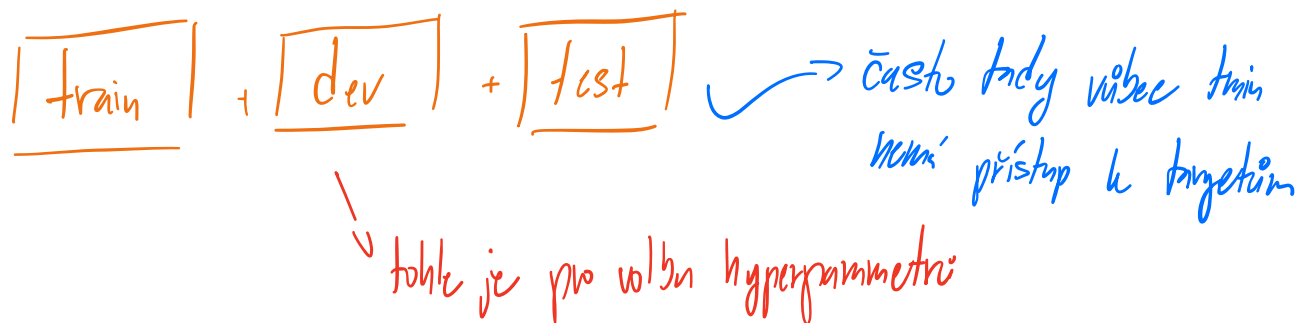 train + dev + test
často tady vůbec train
nemá přístup k targetům
tohle je pro volbu hyperparametrů